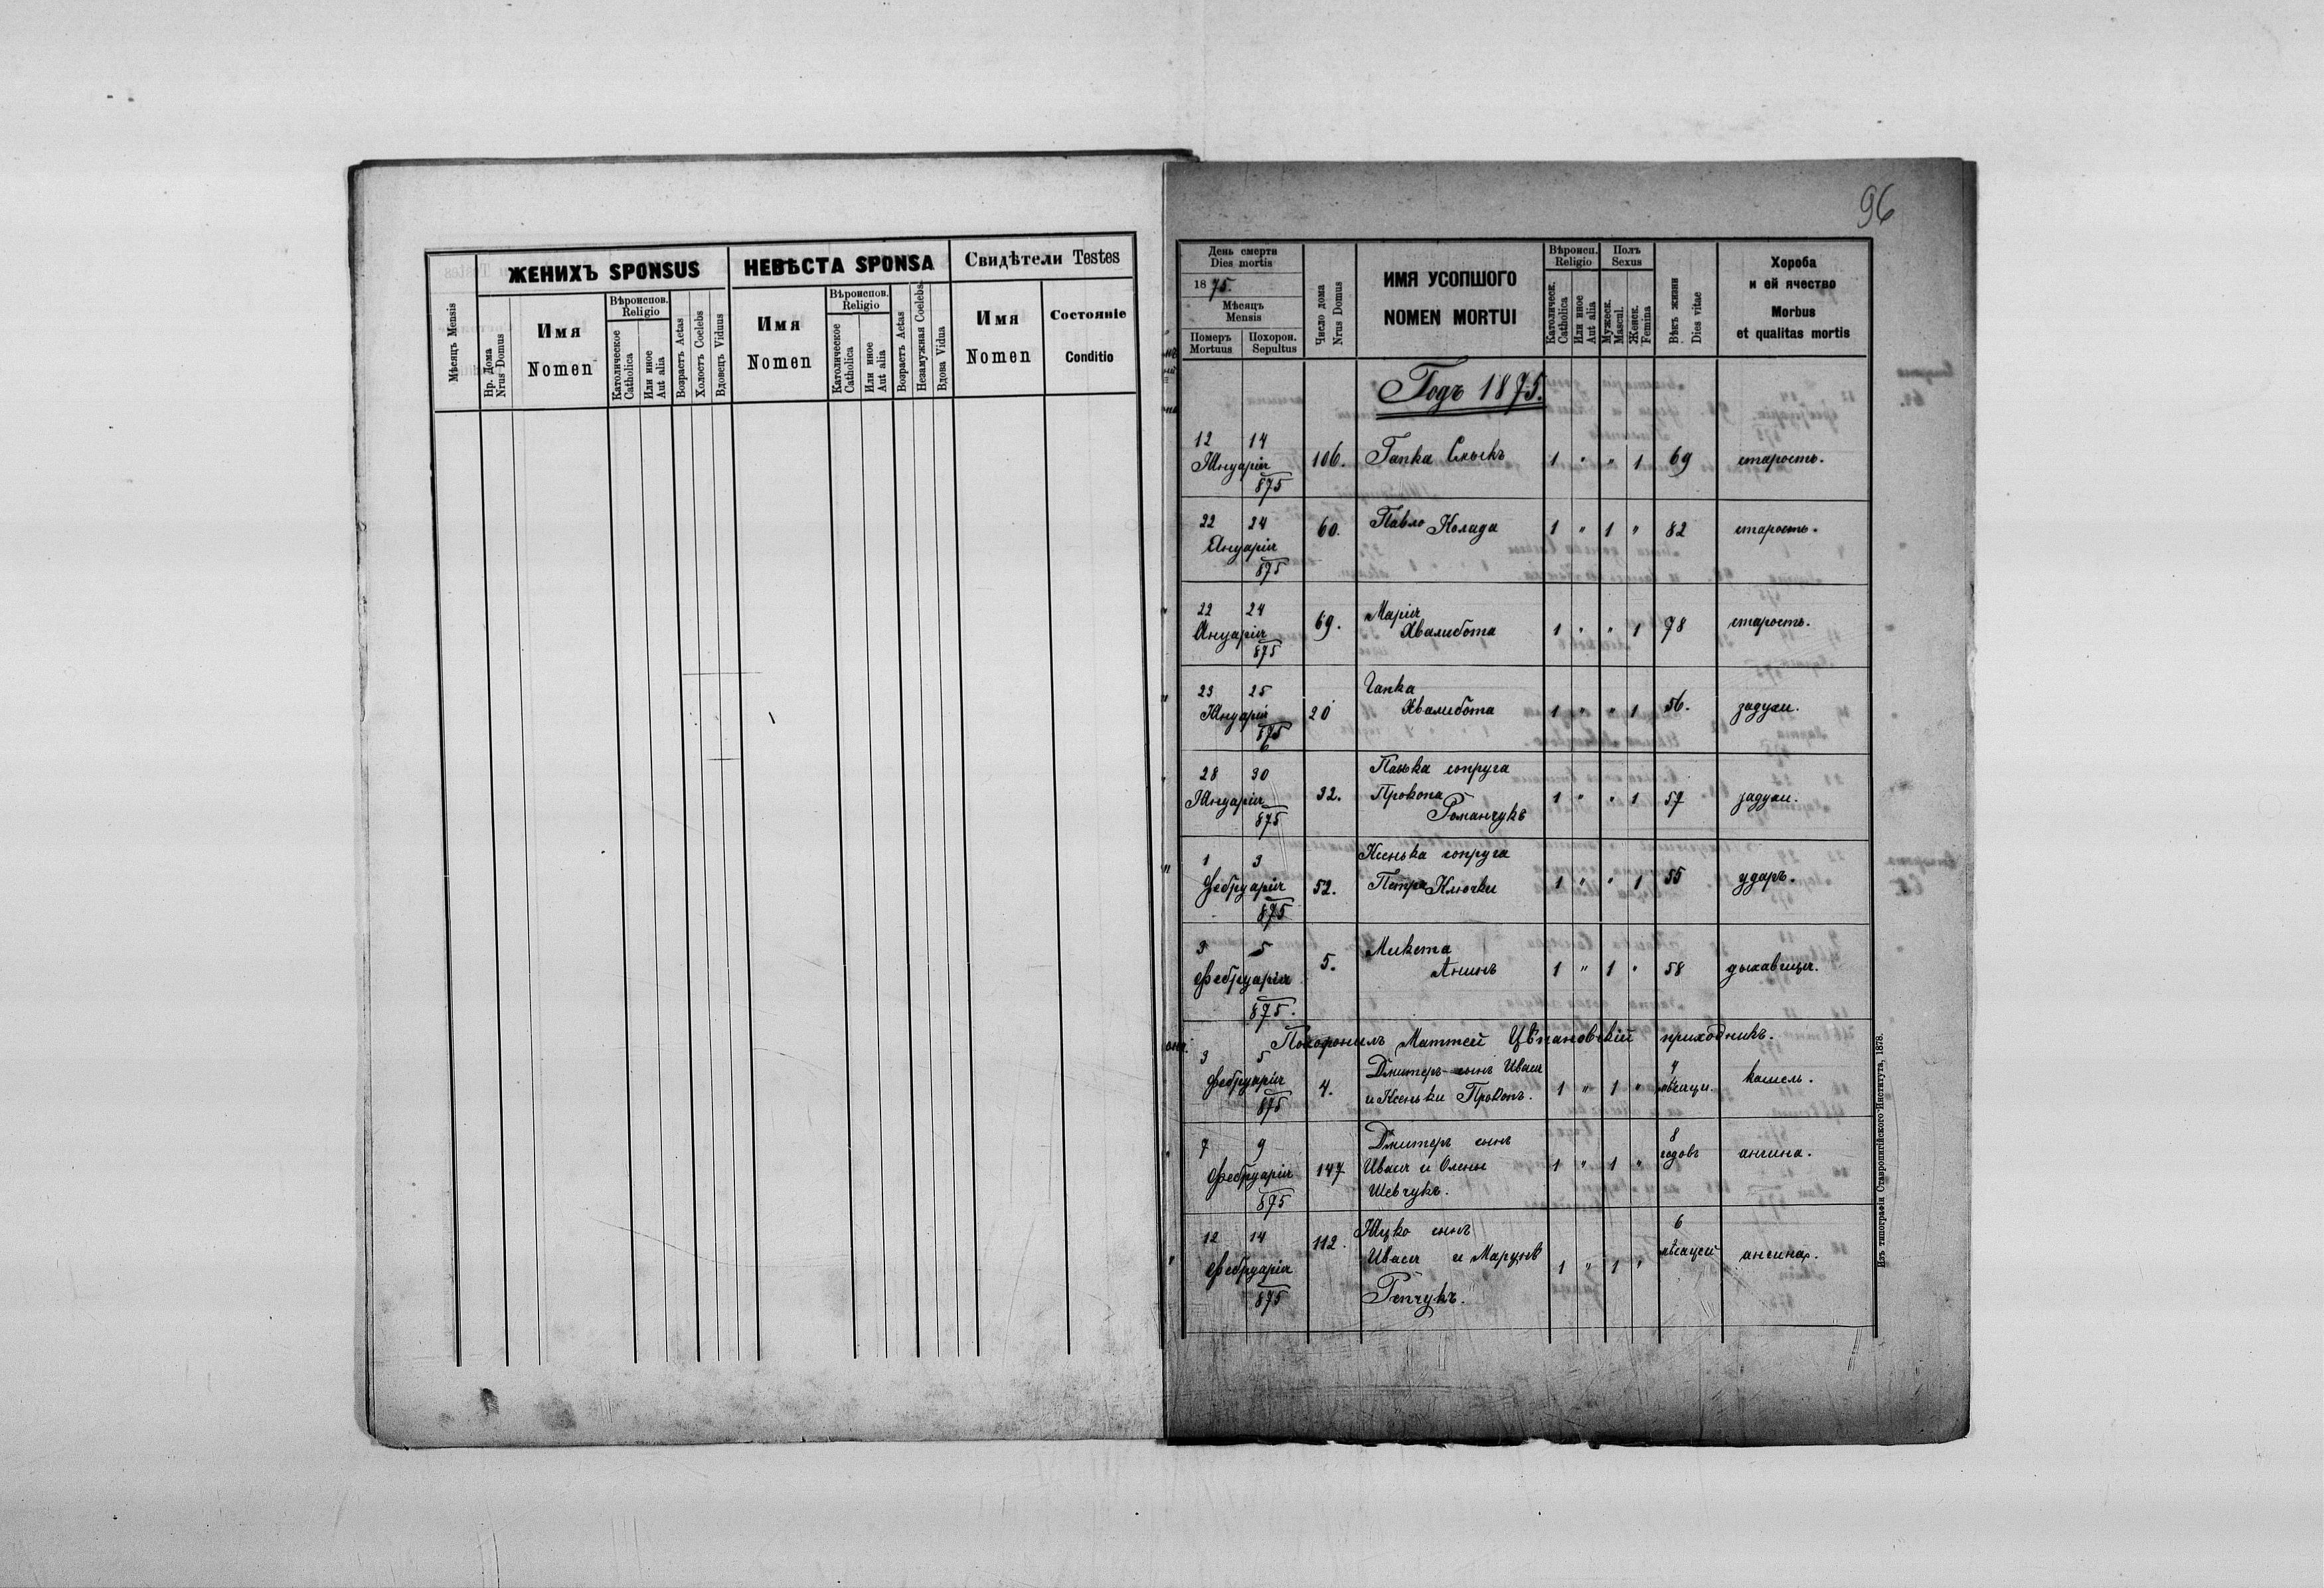 96
Мѣсяцъ Mensis
ЖЕНИХЪ SPONSUS
НЕВѢСТА SPONSA
Свидѣтели Testes
Нр. Дома
Nrus Domus
Имя
Nomen
Вѣроиспов.
Religio
Католическое
Catholica
Или иное
Aut alia
Возрастъ Aetas
Холостъ Coelebs
Вдовецъ Viduus
Имя
Nomen
Вѣроиспов.
Religio
Католическое
Catholica
Или иное
Aut alia
Возрастъ Aetas
Незамужная Coelebs
Вдова Vidua
Имя
Nomen
Состояніе
Conditio
День смерти
Dies mortis
1875.
Мѣсяцъ
Mensis
Померъ
Mortuus
Похорон.
Sepultus
Число дома
Nrus Domus
ИМЯ УСОПШОГО
NOMEN MORTUI
Вѣроисп.
Religio
Католическ.
Catholica
Или иное
Aut alia
Полъ
Sexus
Мужеск.
Mascul.
Женск.
Femina
Вѣкъ жизни
Dies vitae
Хороба
и ей ячество
Morbus
et qualitas mortis
Годъ 1875.
12 14
Януарія
875
106. Гапка 1 " " 1 69 старость.
22 24
Януарія
875
60. Павло Коляда 1 " 1 " 82 старость.
22 24
Януарія
875
69. Марія
Хвалибота 1 " " 1 78 старость.
23 25
Януарія
875
20 Гапка
Хвалибота 1 " " 1 56. задухи.
28 30
Януарія
875
32. сопруга
Прокопа
Романчукъ 1 " " 1 57 задухи.
1 3
Фебруарія
875
52. Ксенька сопруга
Петра Клочки 1 " " 1 55 ударъ.
3 5
Фебруарія
875.
5. Микета
1 " 1 " 58 дыхавиця.
Похоронилъ Маттей Цѣпановскій приходникъ.
3 5
Фебруарія
875
4. Дмитеръ сынъ Ивася
и Ксеньки Прокопъ. 1 " 1 " мѣсяци. кашель.
7 9
Фебруарія
875
147 Дмитеръ сынъ
Ивася и Олены
Шевчукъ. 1 " 1 " 8
годовъ ангина.
12 14
Фебруарія
875
112. Яцко сынъ
Ивася и Марунѣ
1 " 1 " 6
мѣсяцей ангина.
Изъ типографіи Ставропигійского Института, 1878.